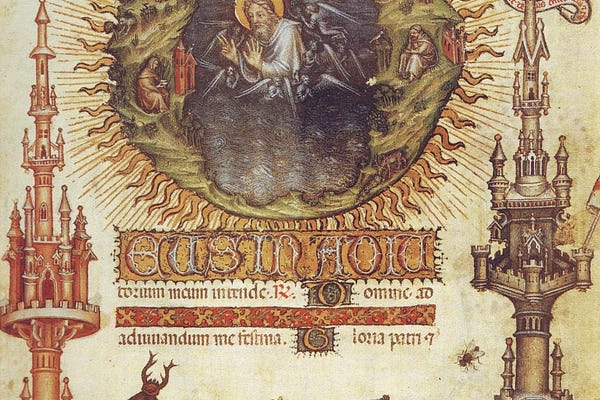 EUS IN ADIU
torium meum intende. R. Domine ad
adiuuandum me festina. Gloria patri ⁊